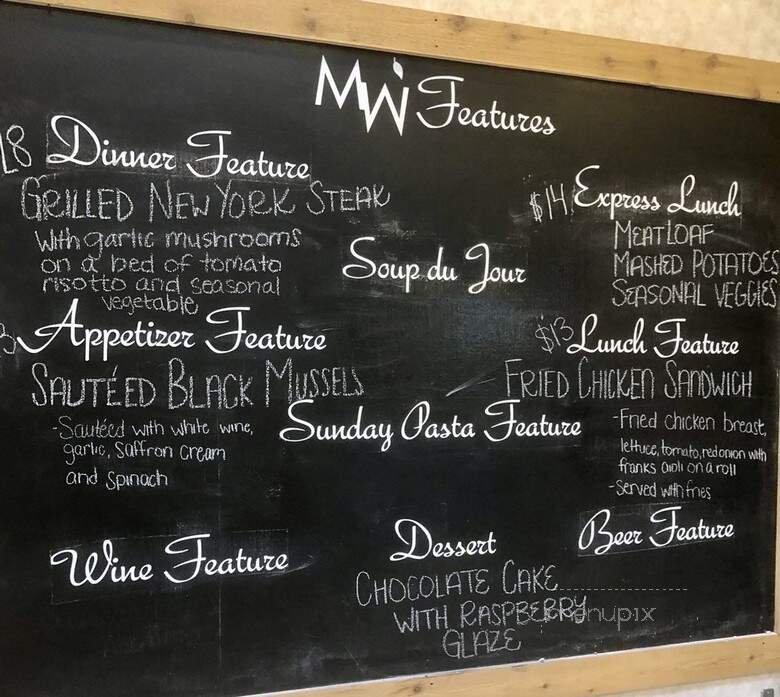 MW Features
L8 Dinner Feature
GRILLED NEW YORK STEAK
with garlic mushrooms
on a bed of tomato
risotto and seasonal
vegetable
3 Appetizer Feature
SAUTÉED BLACK MUSSELS
-Sautéed with white wine,
garlic, Saffron cream
and spinach
Wine Feature
Soup du Jour
Sunday Pasta Feature
Dessert
CHOCOLATE CAKE
WITH RASPBERRY
GLAZE
$14 Express Lunch
MEATLOAF
MASHED POTATOES
SEASONAL VEGGIES
$13 Lunch Feature
FRIED CHICKEN SANDWICH
-Fried chicken breast,
lettuce, tomato, red onion with
franks aioli on a roll
-Served with fries
Beer Feature
menupix